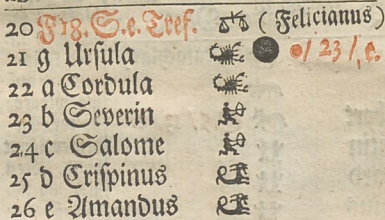 20 F 18. S. e. Tref. ♎ (Felicianus)
21 g Ursula ♏ ● ●/ 23/, e.
22 a Cordula ♏
23 b Severin ♐
24 c Salome ♐
25 d Crispinus ♑
26 e Amandus ♑